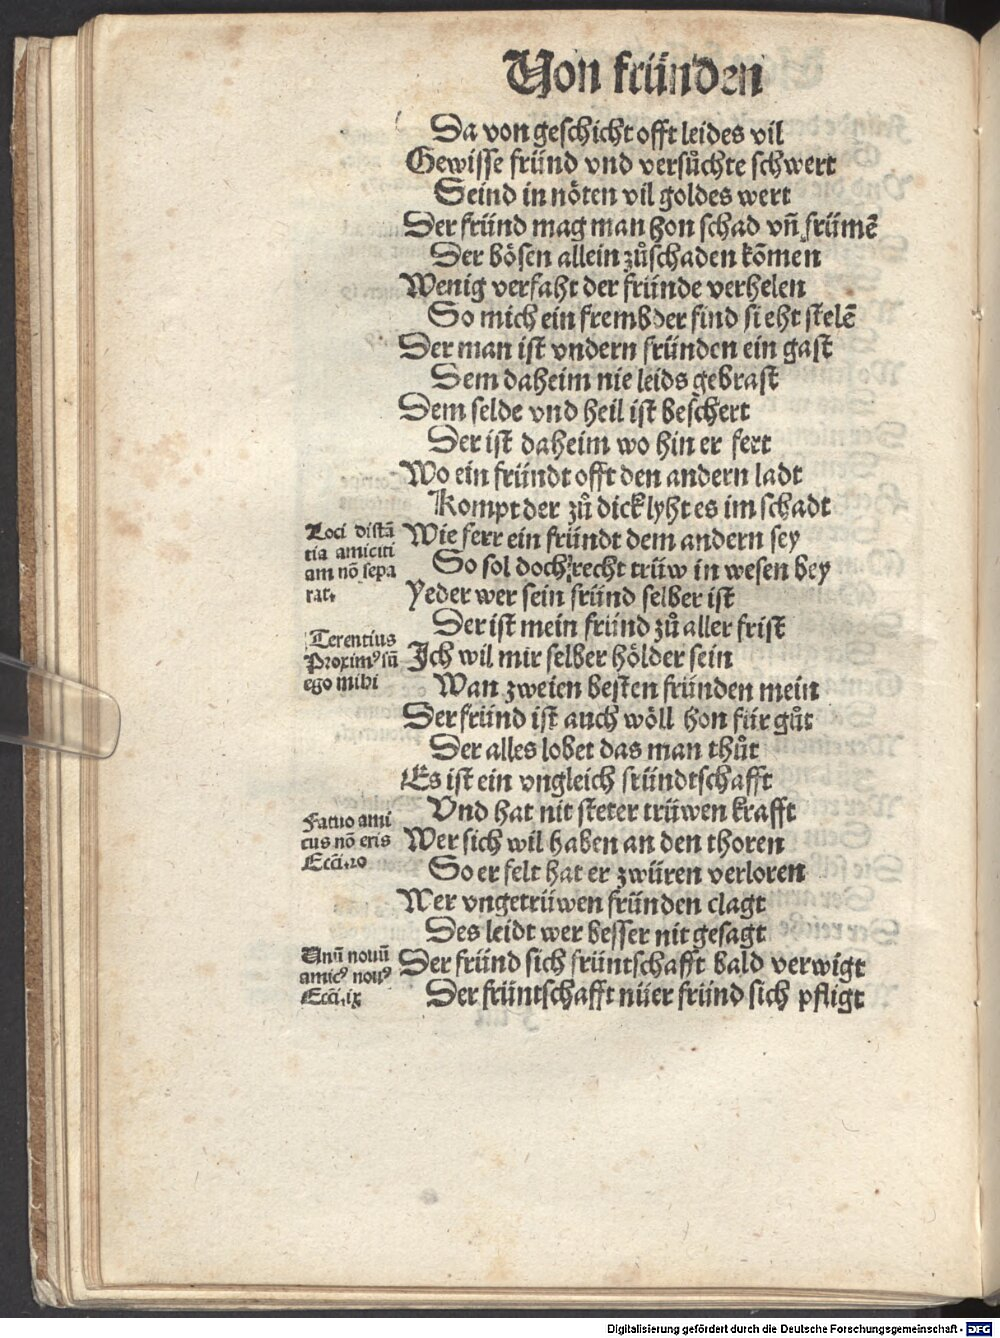 Von fründen
Da von geschicht offt leides vil
Gewisse fründ vnd versůchte schwert
Seind in nöten vil goldes wert
Der fründ mag man hon schad vn̄ frümē
Der bösen allein zůschaden kōmen
Wenig verfaht der fründe verhelen
So mich ein frembder find sieht stelē
Der man ist vndern fründen ein gast
Dem daheim nie leids gebrast
Dem selde vnd heil ist beschert
Der ist daheim wo hin er fert
Wo ein fründt offt den andern ladt
Kompt der zů dick lyht es im schadt
Loci distā
tia amiciti
am nō sepa
rat.
Wie ferr ein fründt dem andern sey
So sol doch recht trüw in wesen bey
Yeder wer sein fründ selber ist
Der ist mein fründ zů aller frist
Terentius
Proximꝰ sū
ego mihi
Ich wil mir selber hölder sein
Wan zweien besten fründen mein
Der fründ ist auch wöll hon für gůt
Der alles lobet das man thůt
Es ist ein vngleich fründtschafft
Vnd hat nit steter trüwen krafft
Fatuo ami
cus nō eris
Eccī.20
Wer sich wil haben an den thoren
So er felt hat er zwüren verloren
Wer vngetrüwen fründen clagt
Des leidt wer besser nit gesagt
Vnū nouū
amicꝰ nouꝰ
Eccī.ix
Der fründ sich früntschafft bald verwigt
Der früntschafft nüer fründ sich pfligt
Digitalisierung gefördert durch die Deutsche Forschungsgemeinschaft - DFG